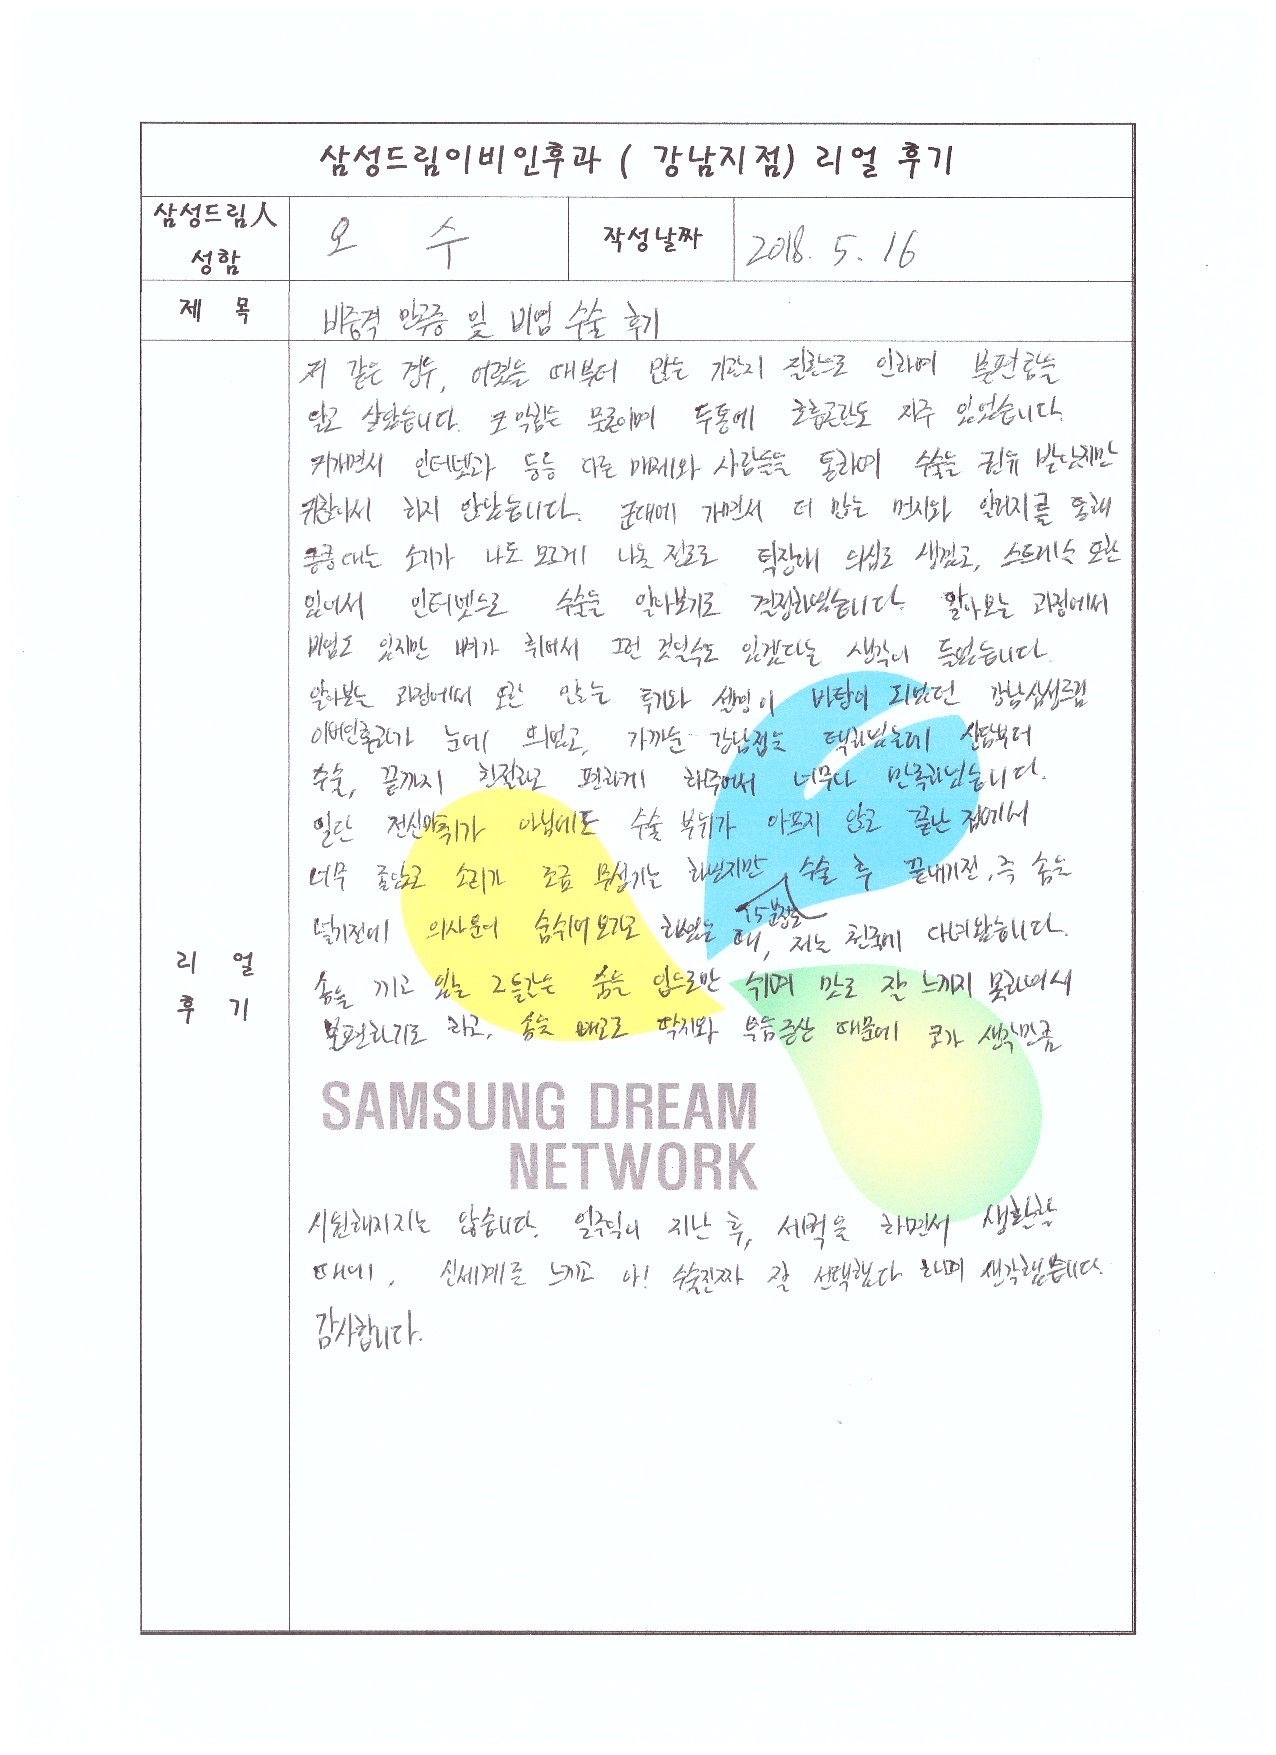 삼성드림이비인후과 ( 강남지점) 리얼 후기
삼성드림人
성함
오 수
작성날짜
2018. 5. 16
제 목
비중격 만곡증 및 비염 수술 후기
저 같은 경우, 어렸을 때부터 많은 기관지 질환으로 인하여 불편함을
앓고 살았습니다. 코막힘는 물론이며 두통에 호흡곤란도 자주 있었습니다.
커가면서 인터넷과 등등 다른 매체와 사람들을 통하여 수술을 권유 받았지만
귀찮아서 하지 않았습니다. 군대에 가면서 더 많은 먼지와 알러지를 통해
킁킁대는 소리가 나도 모르게 나올 정도로 틱장애 의심도 생겼고, 스트레스 또한
있어서 인터넷으로 수술을 알아보기로 결정하였습니다. 알아보는 과정에서
비염도 있지만 뼈가 휘어서 그런 것일수도 있겠다는 생각이 들었습니다.
알아보는 과정에서 또한 많은 후기와 설명이 바탕이 되었던 강남삼성드림
이비인후과가 눈에 띄었고, 가까운 강남점을 택하였는데 상담부터
수술, 끝까지 친절하고 편하게 해주어서 너무나 만족하였습니다.
일단 전신마취가 아님에도 수술 부위가 아프지 않고 끝난 점에서
너무 놀랍고 소리가 조금 무섭기는 하였지만 수술 후 끝내기전, 즉 솜을
넣기전에 의사분이 숨쉬어 보라고 하였을 때, 저는 천국에 다녀왔습니다.
15분정도
솜을 끼고 있는 2틀간은 숨을 입으로만 쉬며 맛도 잘 느끼지 못하여서
불편하기도 하고, 솜을 빼고도 딱지와 부음증상 때문에 코가 생각만큼
SAMSUNG DREAM
NETWORK
시원해지지는 않습니다. 일주일이 지난 후, 세척을 하면서 생활할
때에, 신세계를 느끼고 아! 수술진짜 잘 선택했다 하며 생각했습니다.
감사합니다.